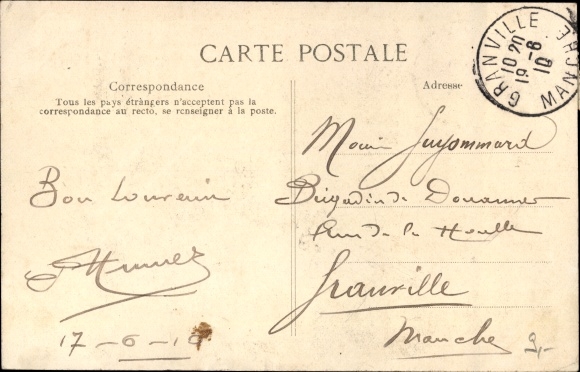 CARTE POSTALE
Correspondance
Tous les pays étrangers n'acceptent pas la
correspondance au recto, se renseigner à la poste.
Bon Souvenir
17-6-10
Adresse
GRANVILLE
10 20
19-6
10
MANCHE
Guyommard
Brigadier de Douanes
Rue de la Houlle
Granville
Manche